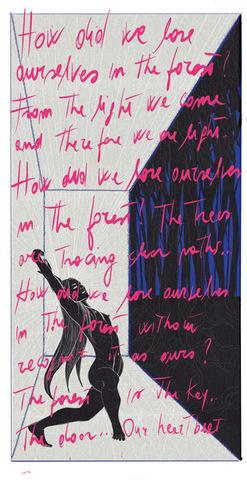 How did we lose
ourselves in the forest?
From the light we come
and therefore we are light.
How did we lose ourselves
in the forest? The trees
are tracing clear paths...
How did we lose ourselves
in the forest without
recognize it as ours?
The forest is the key..
The door... Our heart beat